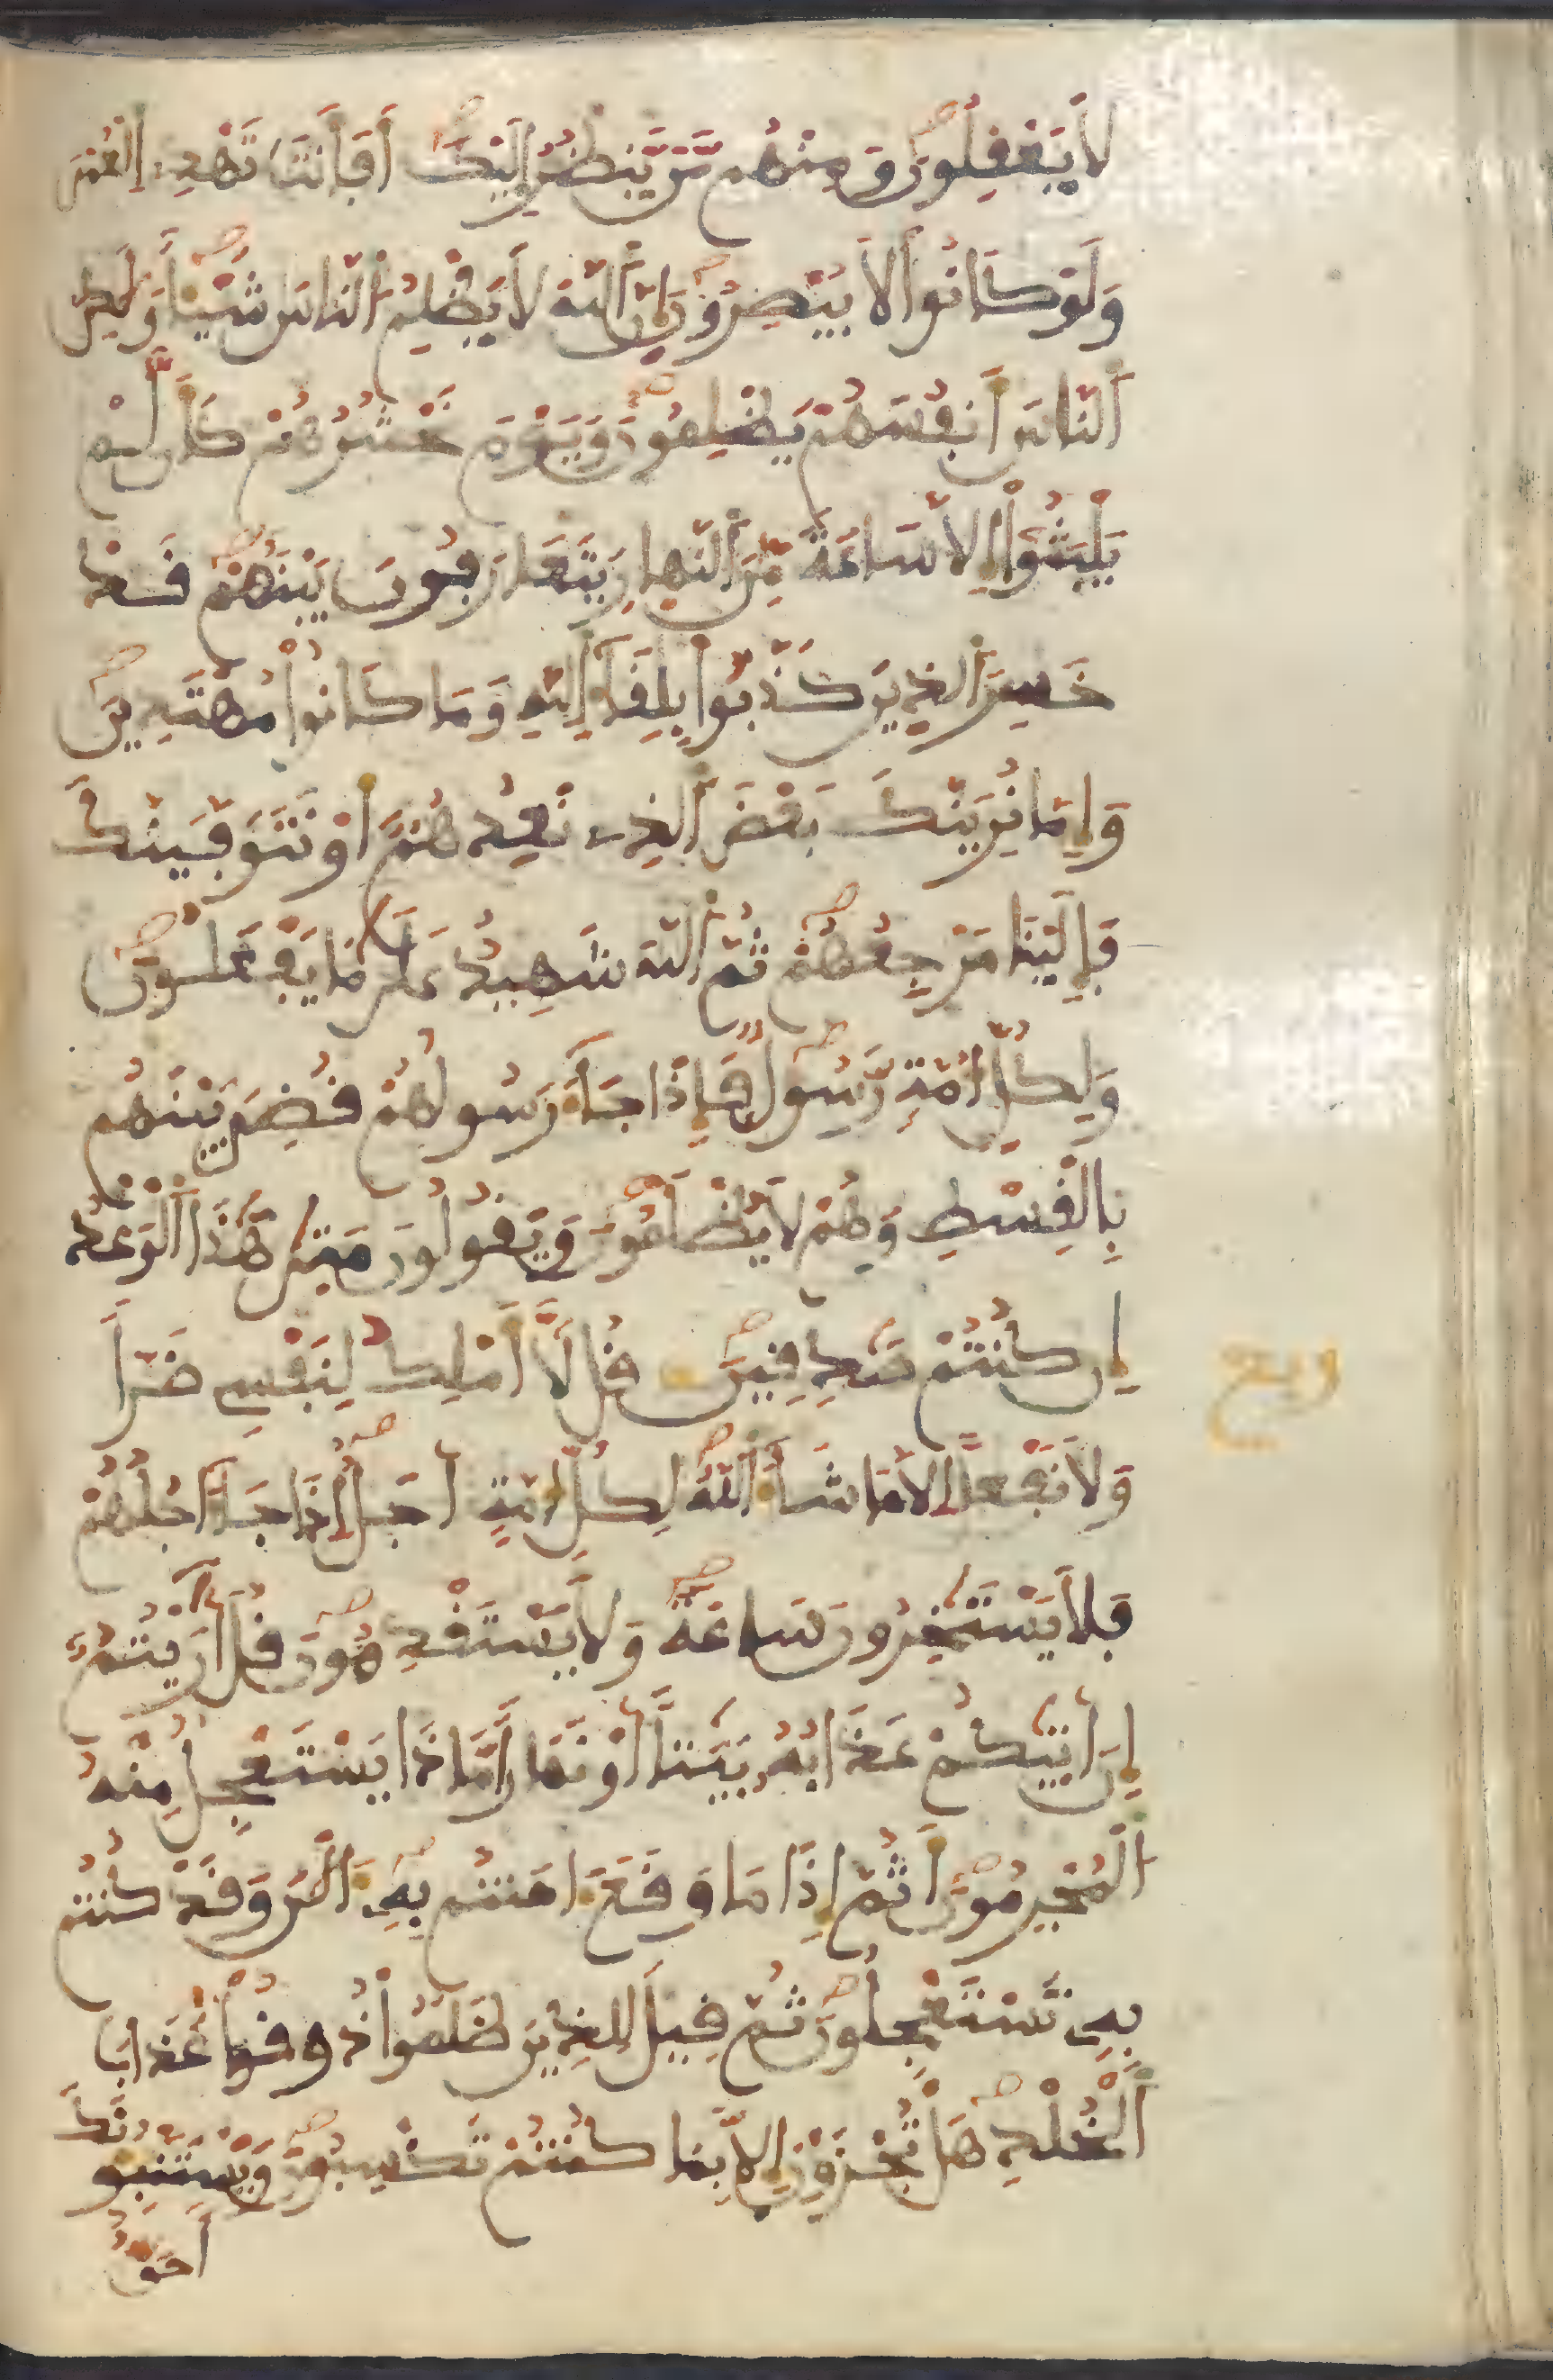 لَا يَعْقِلُونَ وَمِنْهُم مَّن يَّنظُرُ إِلَيْكَ أَفَأَنتَ تَهْدِے اِلْعُمْىَ
وَلَوْ كَانُوا لَا يُبْصِرُونَ إِنَّ اَللَّهَ لَا يَظْلِمُ اُلنَّاسَ شَيْئاً وَلَٰكِنَّ
اَلنَّاسَ أَنفُسَهُمْ يَظْلِمُونَ وَيَوْمَ نَحْشُرُهُمْ كَأَن لَّمْ
يَلْبَثُوا إِلَّا سَاعَةً مِّنَ اَلنَّهارِ يَتَعَارَفُونَ بَيْنَهُمْ قَدْ
خَسِرَ اَلذِينَ كَذَّبُوا بِلِقَاءِ اِللَّهِ وَمَا كَانُوا مُهْتَدِينَ
وَإِمَّا نُرِيَنَّكَ بَعْضَ اَلذِے نَعِدُهُمْ أَوْ نَتَوَفَّيَنَّكَ
فَإِلَيْنَا مَرْجِعُهُمْ ثُمَّ اَللَّهُ شَهِيدٌ عَلَىٰ مَا يَفْعَلُونَ
وَلِكُلِّ أُمَّةٍ رَّسُولٌ فَإِذَا جَاءَ رَسُولُهُمْ قُضِىَ بَيْنَهُم
بِالْقِسْطِ وَهُمْ لَا يُظْلَمُونَ وَيَقُولُونَ مَتَىٰ هَٰذَا اَلْوَعْدُ
إِن كُنتُمْ صَٰدِقِينَ قُل لَّا أَمْلِكُ لِنَفْسِے ضَرّاً
وَلَا نَفْعاً إِلَّا مَا شَاءَ اَللَّهُ لِكُلِّ أُمَّةٍ أَجَلٌ إِذَا جَا أَجَلُهُمْ
فَلَا يَسْتَٰخِرُونَ سَاعَةً وَلَا يَسْتَقْدِمُونَ قُلْ أَرَٰيْتُمُ
إِنْ أَتَىٰكُمْ عَذَابُهُ بَيَٰتاً أَوْ نَهَاراً مَّاذَا يَسْتَعْجِلُ مِنْهُ
اُلْمُجْرِمُونَ أَثُمَّ إِذَا مَا وَقَعَ ءَامَنتُم بِهِ ءَالَٰنَ وَقَدْ كُنتُم
بِهِ تَسْتَعْجِلُونَ ثُمَّ قِيلَ لِلذِينَ ظَلَمُوا ذُوقُوا عَذَابَ
اَلْخُلْدِ هَلْ تُجْزَوْنَ إِلَّا بِمَا كُنتُمْ تَكْسِبُونَ وَيَسْتَنبِئُونَكَ
أَحَقٌّ
ربع